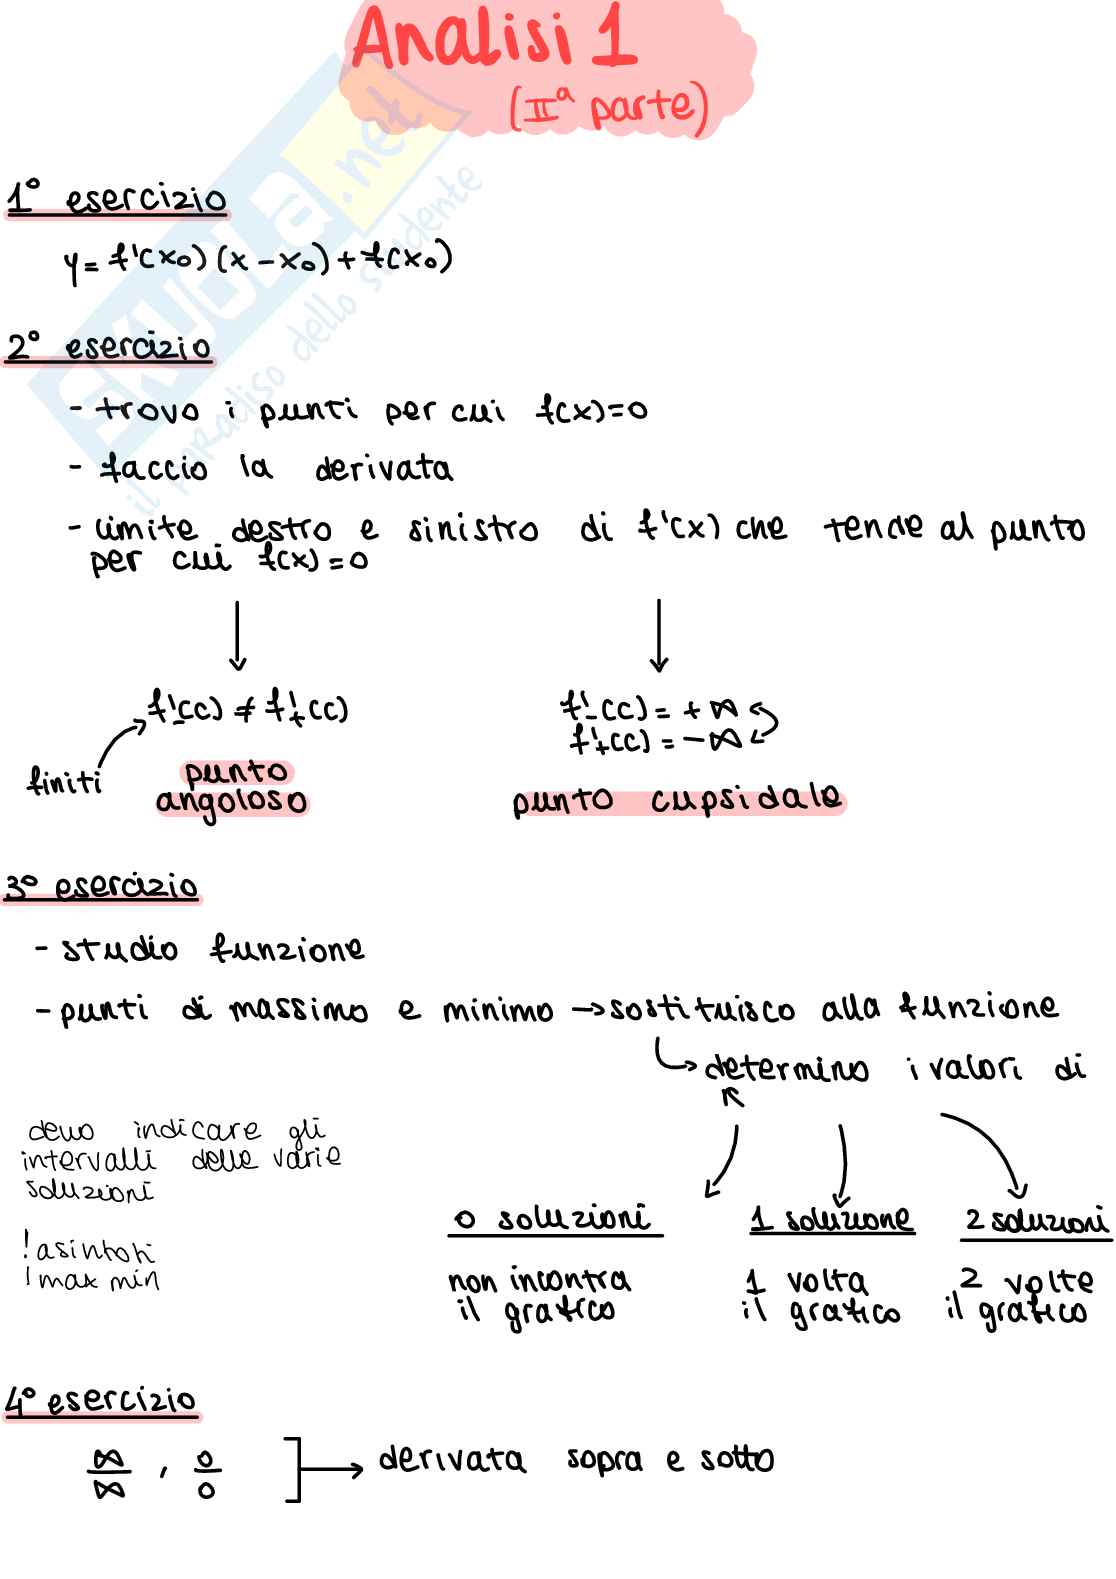 Analisi 1
(IIª parte)
1° esercizio
y = f'(x₀)(x - x₀) + f(x₀)
2° esercizio
- trovo i punti per cui f(x)=0
- faccio la derivata
- limite destro e sinistro di f'(x) che tende al punto
per cui f(x)=0
f'₋(c) ≠ f'₊(c)
finiti
punto
angoloso
f'₋(c) = +∞
f'₊(c) = -∞
punto cupsidale
3° esercizio
- studio funzione
- punti di massimo e minimo → sostituisco alla funzione
determino i valori di
k
devo indicare gli
intervalli delle varie
soluzioni
! asintoti
! max min
0 soluzioni
non incontra
il grafico
1 soluzione
1 volta
il grafico
2 soluzioni
2 volte
il grafico
4° esercizio
∞/∞ , 0/0 ] → derivata sopra e sotto
SKUOLA.net
il paradiso dello studente